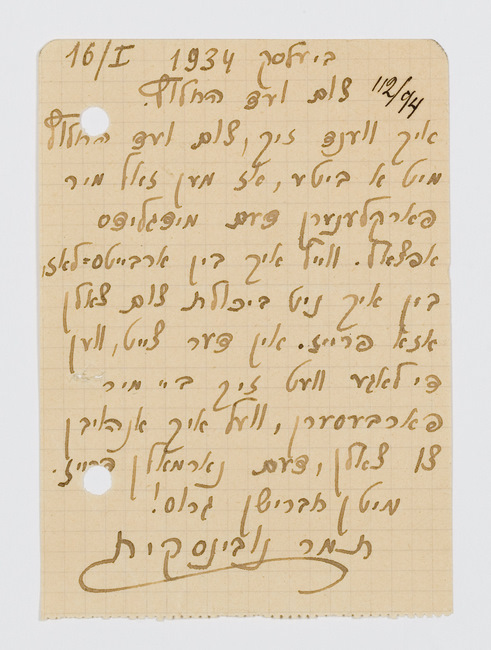 ביעלסק 16/I 1934
צום ועד החלוץ.
112/94
איך ווענד זיך, צום ועד החלוץ
מיט א ביטע, אז מען זאל מיר
פארקלענערן דעם מידגלידס
אפצאל. ווייל איך בין ארבייטס=לאז,
בין איך ניט ביכולת צום צאלן
אזא פרייז. אין דער צייט, ווען
די לאגע וועט זיך ביי מיר
פארבעסערן, וועל איך אנהויבן
צו צאלן, דעם נארמאלן פרייז.
מיטן חברישן גרוס!
תמר נובינסקית